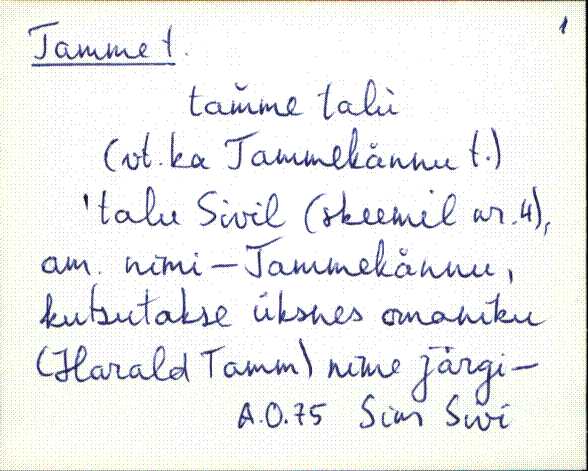 1
Tamme t.
tam̆me talu
(vt. ka Tammekännu t.)
'talu Sivil (skeemil nr. 4),
am. nimi – Tammekännu,
kutsutakse üksnes omaniku
(Harald Tamm) nime järgi –
A.O.75 Sim Sivi